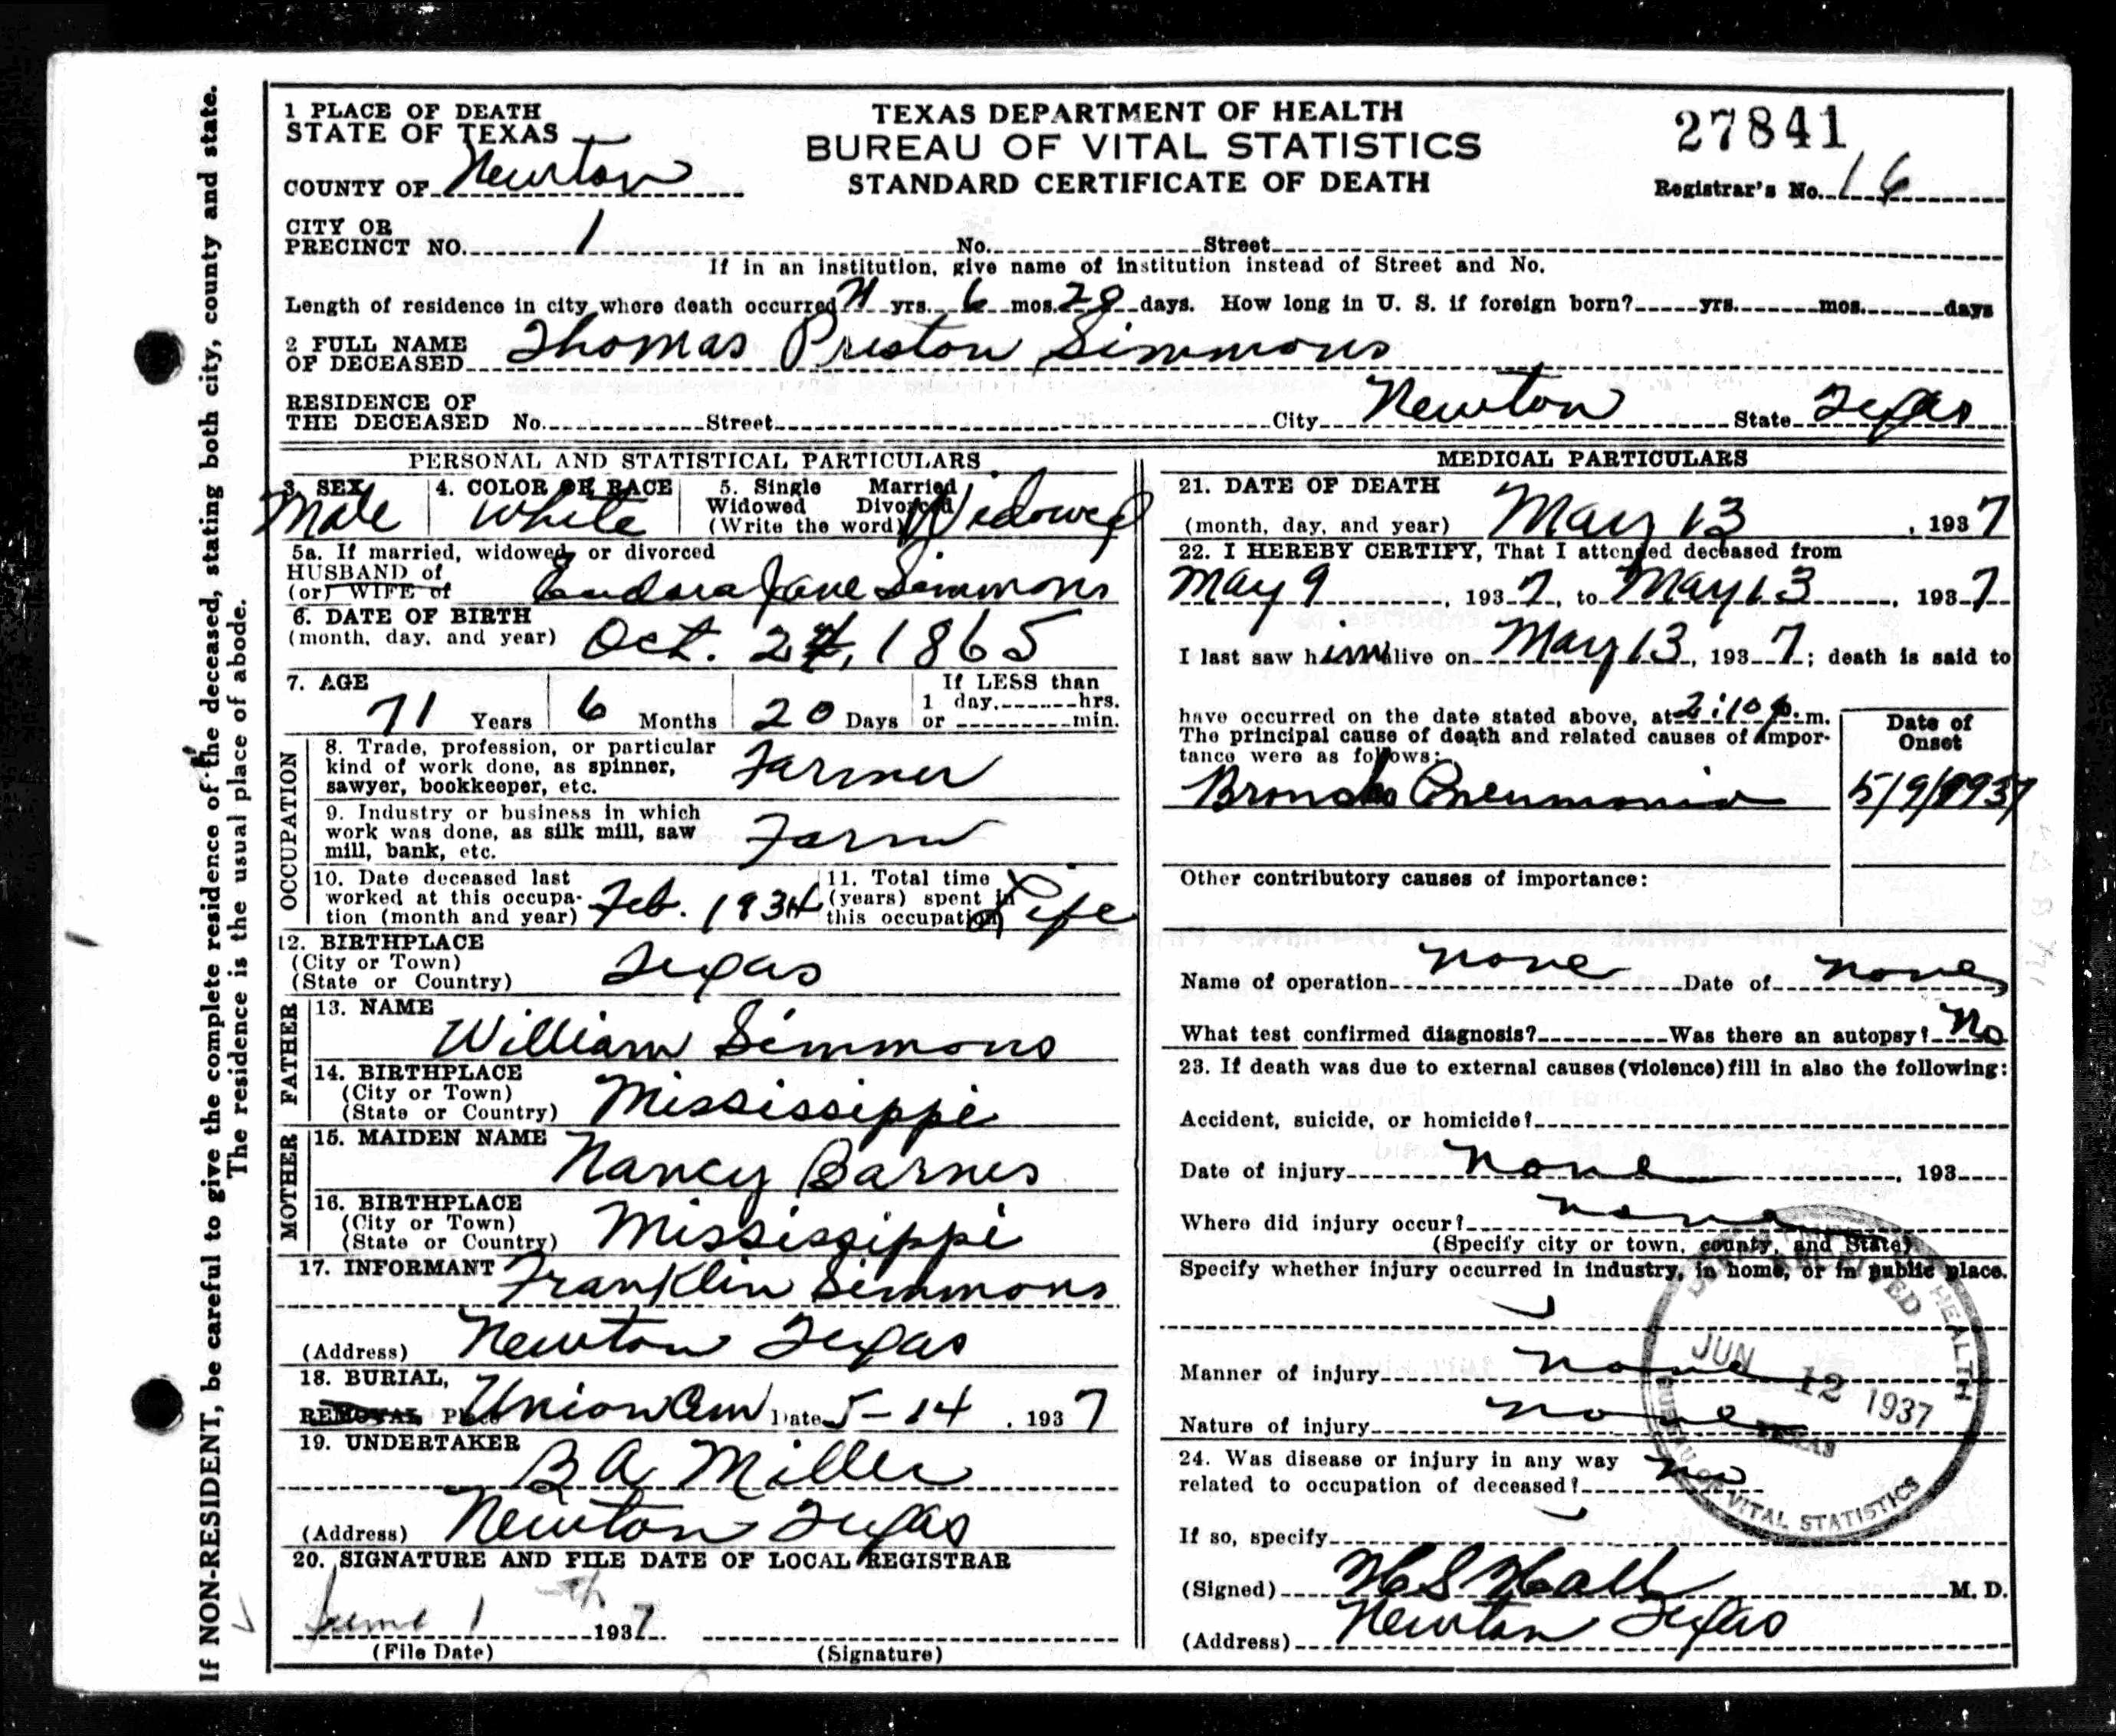 If NON-RESIDENT, be careful to give the complete residence of the deceased, stating both city, county and state.
The residence is the usual place of abode.
1 PLACE OF DEATH
STATE OF TEXAS
COUNTY OF Newton
TEXAS DEPARTMENT OF HEALTH
BUREAU OF VITAL STATISTICS
STANDARD CERTIFICATE OF DEATH
27841
Registrar's No. 16
CITY OR
PRECINCT NO. 1 No. Street
If in an institution, give name of institution instead of Street and No.
Length of residence in city where death occurred 71 yrs. 6 mos. days. How long in U. S. if foreign born? yrs. mos. days
2 FULL NAME
OF DECEASED Thomas Preston Simmons
RESIDENCE OF
THE DECEASED No. Street City Newton State Texas
PERSONAL AND STATISTICAL PARTICULARS
3. SEX Male
4. COLOR OR RACE White
5. Single Married
Widowed Divorced
(Write the word) Widowed
5a. If married, widowed, or divorced
HUSBAND of
(or) WIFE of Eudora Jane Simmons
6. DATE OF BIRTH
(month, day, and year) Oct. 24, 1865
7. AGE
71 Years 6 Months 20 Days
If LESS than
1 day, hrs.
or min.
OCCUPATION
8. Trade, profession, or particular
kind of work done, as spinner,
sawyer, bookkeeper, etc. Farmer
9. Industry or business in which
work was done, as silk mill, saw
mill, bank, etc. Farm
10. Date deceased last
worked at this occupa-
tion (month and year) Feb. 1934
11. Total time
(years) spent in
this occupation Life
12. BIRTHPLACE
(City or Town)
(State or Country) Texas
FATHER
13. NAME
William Simmons
14. BIRTHPLACE
(City or Town)
(State or Country) Mississippi
MOTHER
15. MAIDEN NAME
Nancy Barnes
16. BIRTHPLACE
(City or Town)
(State or Country) Mississippi
17. INFORMANT Franklin Simmons
(Address) Newton Texas
18. BURIAL,
REMOVAL Place Union Cem Date 5-14, 1937
19. UNDERTAKER
B A Miller
(Address) Newton Texas
20. SIGNATURE AND FILE DATE OF LOCAL REGISTRAR
June 1 1937
(File Date) (Signature)
MEDICAL PARTICULARS
21. DATE OF DEATH
(month, day, and year) May 13, 1937
22. I HEREBY CERTIFY, That I attended deceased from
May 9, 1937, to May 13, 1937
I last saw him alive on May 13, 1937; death is said to
have occurred on the date stated above, at 2:10 p.m.
The principal cause of death and related causes of impor-
tance were as follows:
Broncho Pneumonia
Date of
Onset
5/9/1937
Other contributory causes of importance:
Name of operation none Date of none
What test confirmed diagnosis? Was there an autopsy? No
23. If death was due to external causes (violence) fill in also the following:
Accident, suicide, or homicide?
Date of injury none, 193
Where did injury occur? none
(Specify city or town, county, and State)
Specify whether injury occurred in industry, in home, or in public place.
Manner of injury none
Nature of injury none
24. Was disease or injury in any way
related to occupation of deceased? no
If so, specify
(Signed) H S Hall M. D.
(Address) Newton Texas
HEALTH
JUN 12 1937
TEXAS
BUREAU OF VITAL STATISTICS